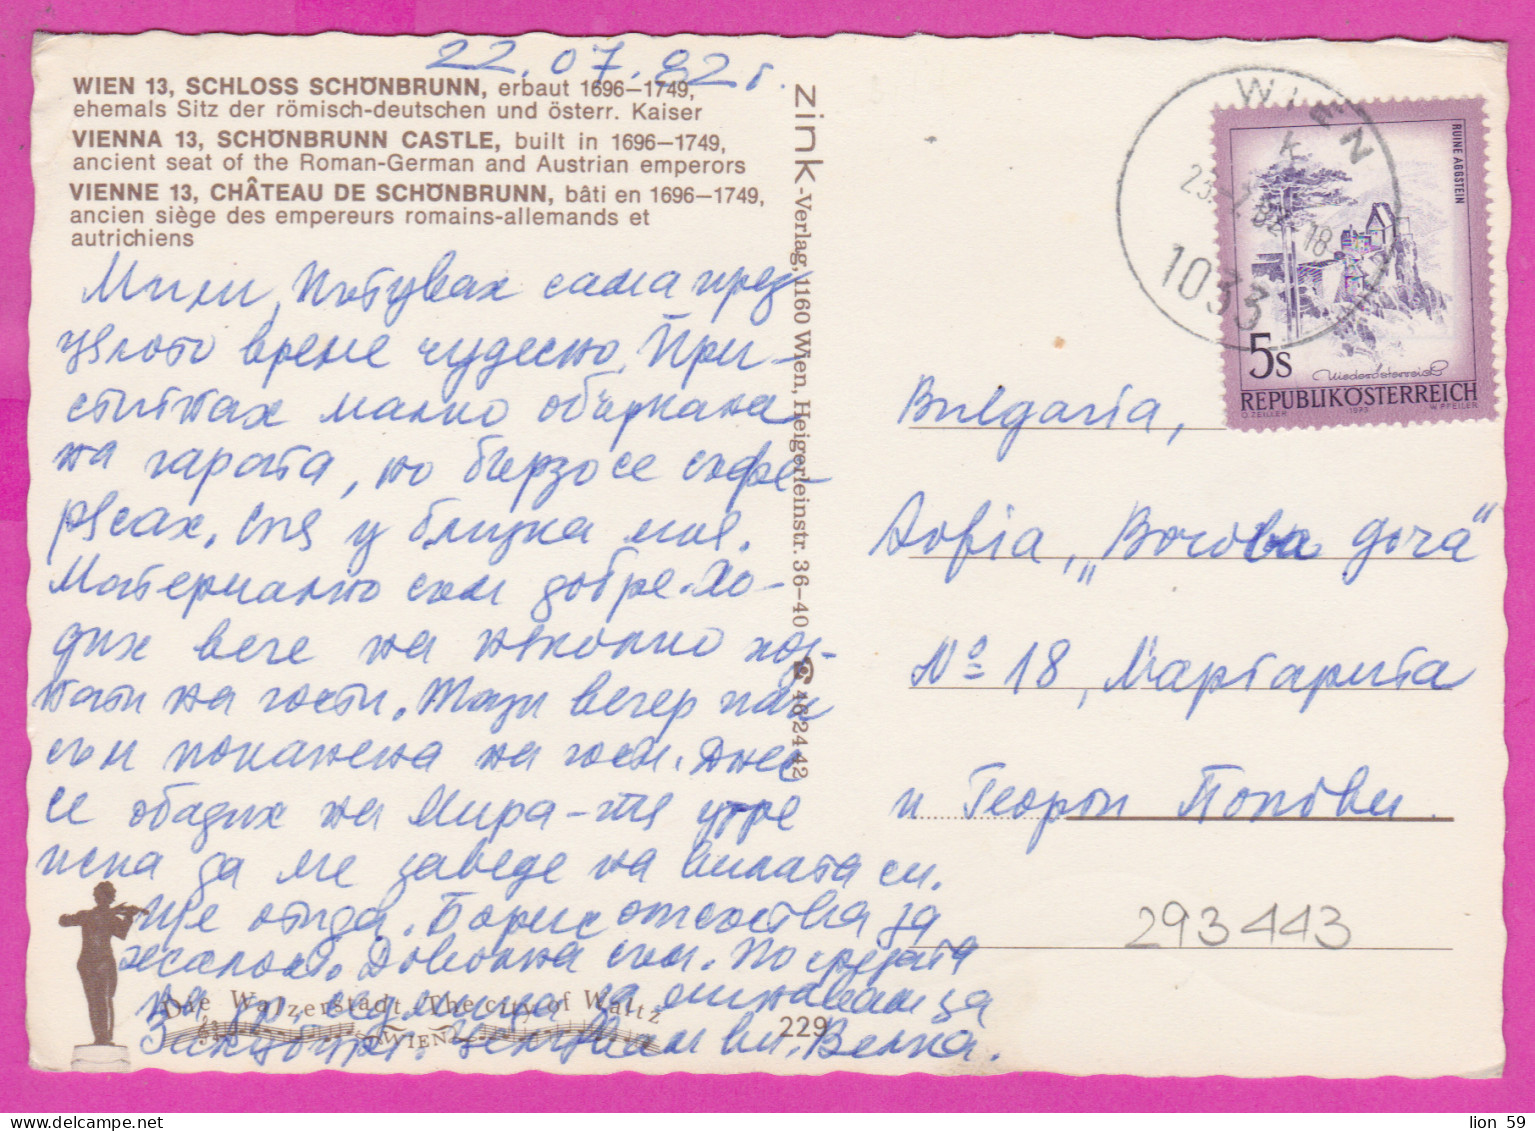 22.07.82 г.
WIEN 13, SCHLOSS SCHÖNBRUNN, erbaut 1696–1749,
ehemals Sitz der römisch-deutschen und österr. Kaiser
VIENNA 13, SCHÖNBRUNN CASTLE, built in 1696–1749,
ancient seat of the Roman-German and Austrian emperors
VIENNE 13, CHÂTEAU DE SCHÖNBRUNN, bâti en 1696–1749,
ancien siège des empereurs romains-allemands et
autrichiens
Мили, Пътувах сама през
цялото време чудесно. При-
стигнах малко объркана
на гарата, но бързо се
. Спя у близка моя.
Материално съм добре. Хо-
дих вече на няколко
на гости. Тази вечер пак
съм поканена на гости. Днес
се обадих на Мира – тя утре
иска да ме заведе на вилата си.
Ще отида. Борис отсъства за
жалост. Доволна съм. По средата
на др. седмица заминавам за
Залцбург. Целувам ви. Велка.
Die Walzerstadt The city of Waltz
WIEN
229
zink-Verlag, 1160 Wien, Heigerleinstr. 36–40 ☎ 46 24 42
WIEN
23.-7.82-18
1033
RUINE AGGSTEIN
5s
Niederösterreich
REPUBLIK ÖSTERREICH
O.ZEILLER 1973 W.PFEILER
Bulgaria,
Sofia, „Borova gora"
№ 18, Маргарита
и Георги Попови.
293443
lion 59